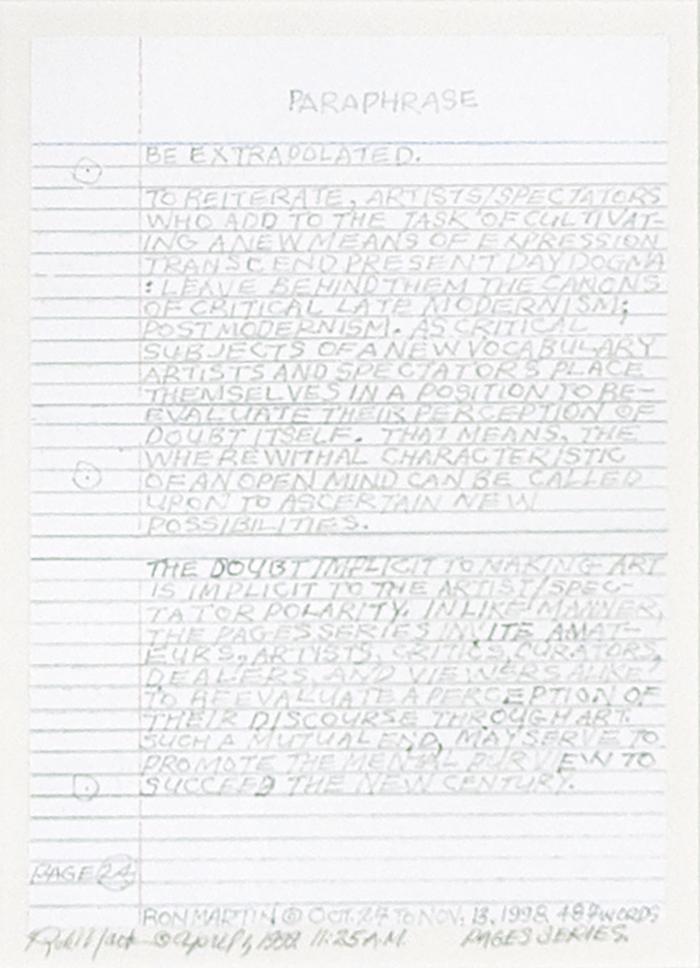 PARAPHRASE
BE EXTRAPOLATED.
TO REITERATE, ARTISTS/SPECTATORS
WHO ADD TO THE TASK OF CULTIVAT-
ING A NEW MEANS OF EXPRESSION
TRANSCEND PRESENT DAY DOGMA
: LEAVE BEHIND THEM THE CANONS
OF CRITICAL LATE MODERNISM;
POSTMODERNISM. AS CRITICAL
SUBJECTS OF A NEW VOCABULARY
ARTISTS AND SPECTATORS PLACE
THEMSELVES IN A POSITION TO RE-
EVALUATE THEIR PERCEPTION OF
DOUBT ITSELF. THAT MEANS, THE
WHEREWITHAL CHARACTERISTIC
OF AN OPEN MIND CAN BE CALLED
UPON TO ASCERTAIN NEW
POSSIBILITIES.
THE DOUBT IMPLICIT TO MAKING ART
IS IMPLICIT TO THE ARTIST/SPEC-
TATOR POLARITY. IN LIKE MANNER,
THE PAGES SERIES INVITE AMAT-
EURS, ARTISTS, CRITICS, CURATORS,
DEALERS, AND VIEWERS ALIKE
TO REEVALUATE A PERCEPTION OF
THEIR DISCOURSE THROUGH ART.
SUCH A MUTUAL END, MAY SERVE TO
PROMOTE THE MENTAL PURVIEW TO
SUCCEED THE NEW CENTURY.
PAGE 24
RON MARTIN © OCT. 27 TO NOV. 13, 1998, 487 WORDS
© April 1, 11:25 A.M. PAGES SERIES.